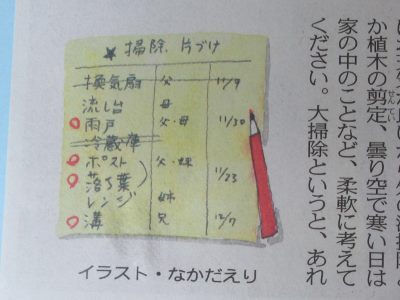 ★ 掃除、片づけ
換気扇 父 11/9
流し台 母
雨戸 父・母 11/30
冷蔵庫
ポスト 父・妹
落ち葉 11/23
レンジ 姉
溝 兄 12/7
イラスト・なかだえり
か植木の剪定、曇り空で寒い日は
せんてい
家の中のことなど、柔軟に考えて
ください。大掃除というと、あれ